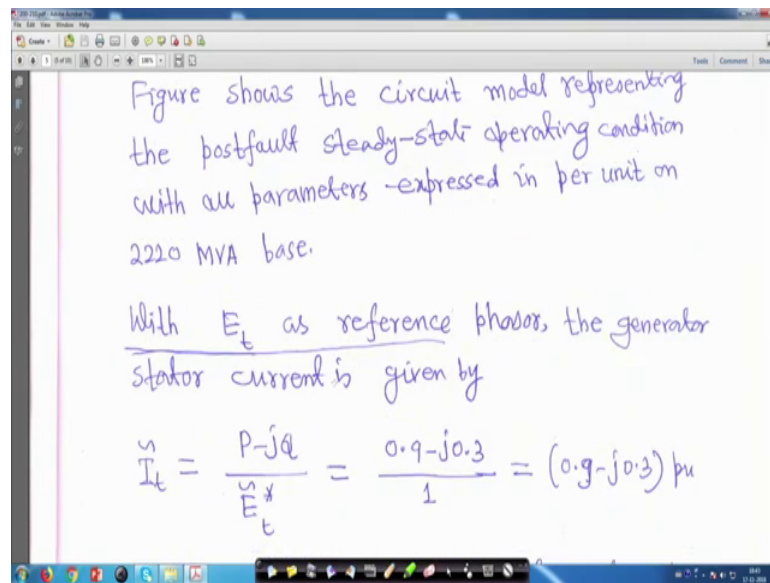 200-250.pdf - Adobe Acrobat Pro
File Edit View Window Help
Create
Tools Comment
Figure shows the circuit model representing
the postfault steady-state operating condition
with all parameters expressed in per unit on
2220 MVA base.
With E_t as reference phasor, the generator
stator current is given by
Ĩ_t = P-jQ / Ẽ_t^* = 0.9-j0.3 / 1 = (0.9-j0.3) pu